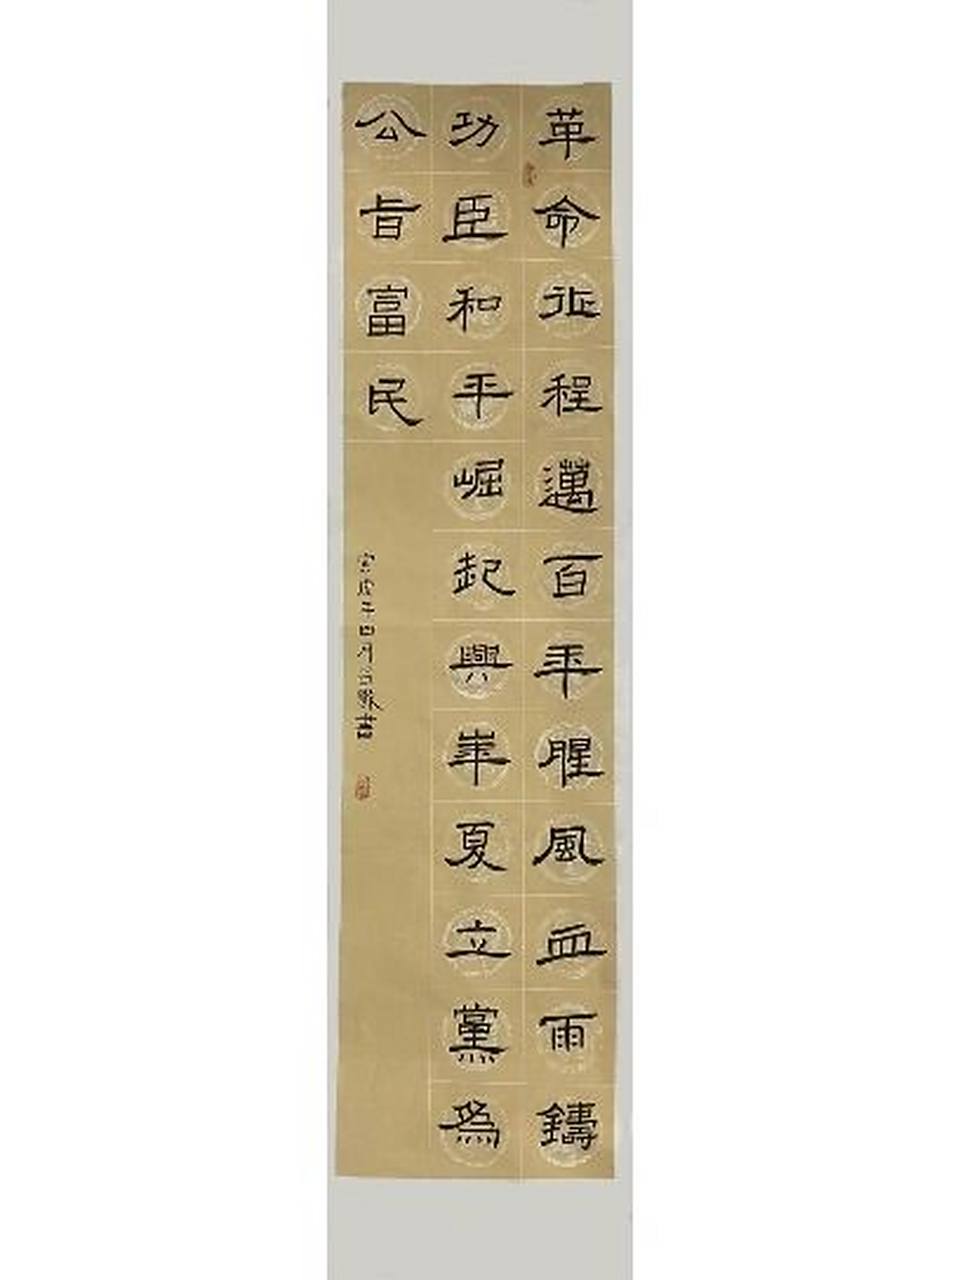 革命征程邁百年腥風血雨鑄
功臣和平崛起興華夏立黨為
公旨富民
寅虎年四月書